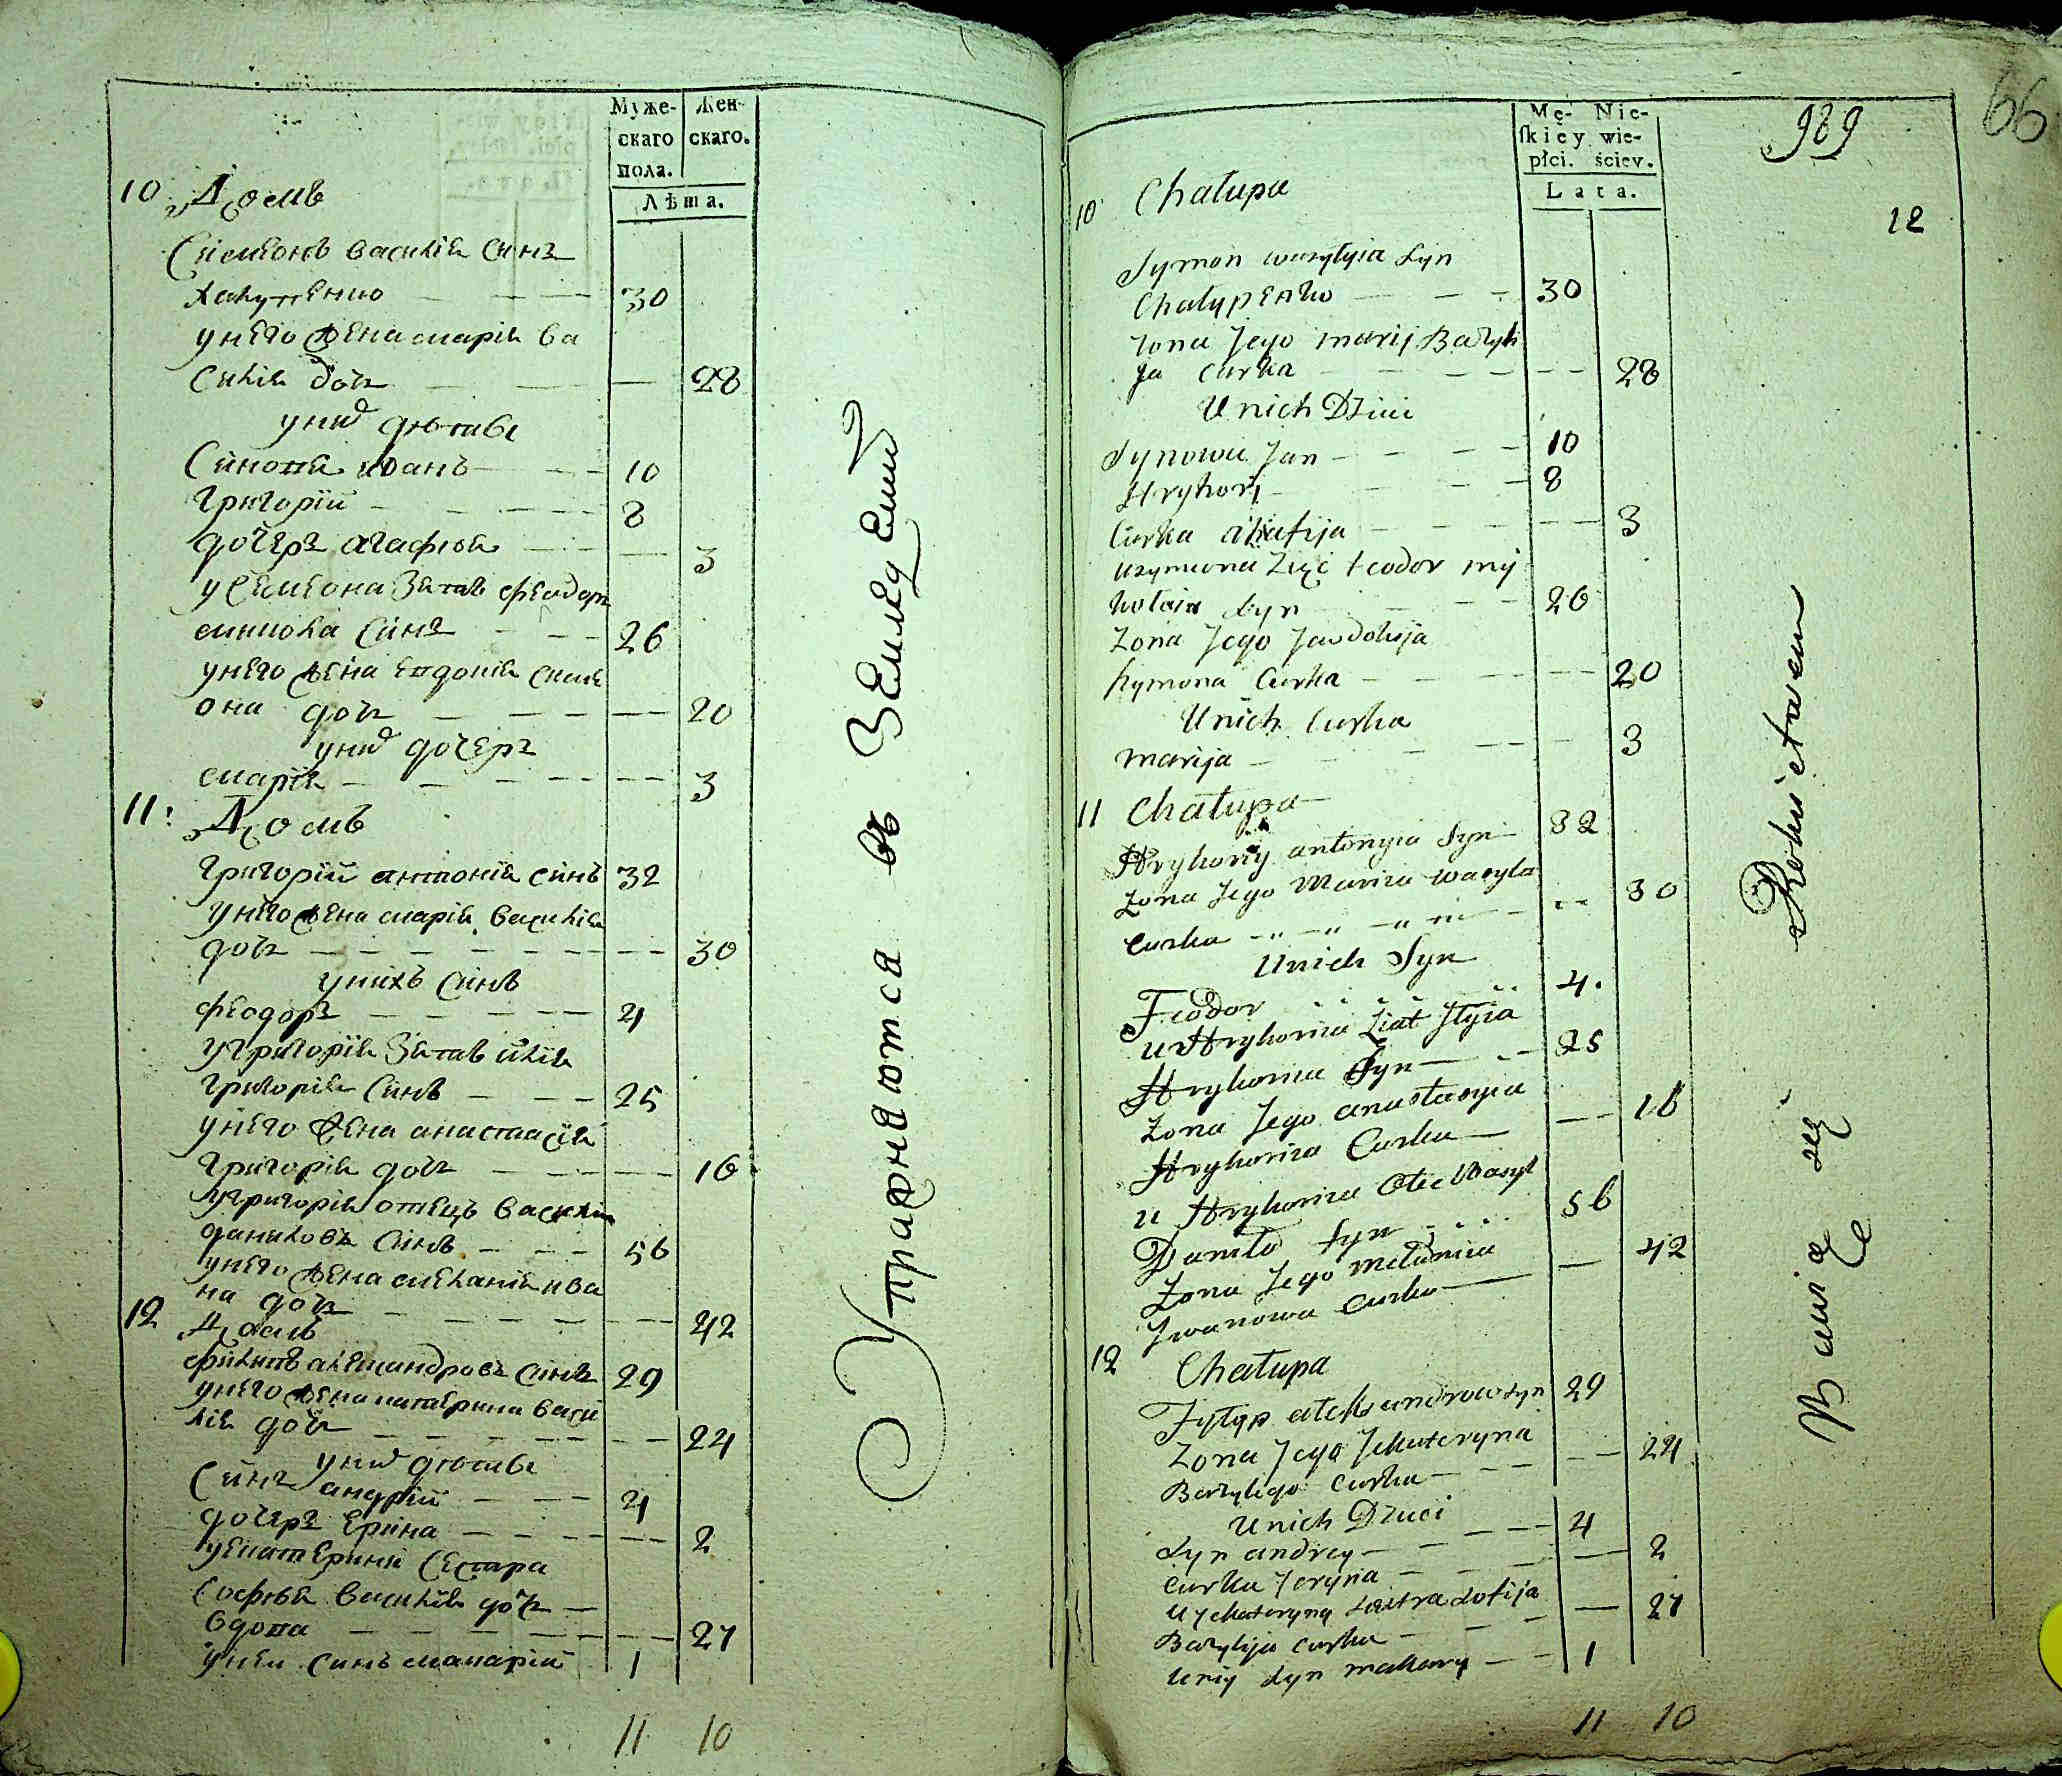 Муже-
скаго
пола.
Жен-
скаго.
Лѣта.
10 Домъ
Симеонъ василія синъ
халупенко 30
унего жена марія ва
силія доч 28
уних дѣтве
Синовя иванъ 10
григорій 8
дочеръ агафія 3
у Семеона Зятъ феодоръ
миколa синъ 26
унего жена евдокія симе
она доч 20
уних дочеръ
марія 3
11: Домъ
григорій антонія синъ 32
унего жена марія василія
доч 30
унихъ синъ
феодоръ 4
угригорія Зятъ илія
григорія синъ 25
унего жена анастасія
григорія доч 16
угригорія отецъ василій
даниловъ синъ 56
унего жена меланія ива
на доч 42
12 Домъ
филипъ александровъ синъ 29
унего жена катерина васи
лія доч 24
уних дѣтве
Синъ андрій 4
дочеръ ерина 2
укатерини сестра
софія василія доч
вдова 27
унеи синъ макарій 1
11 10
Упражняютса въ Земледеліи
Mę- Nie-
skiey wie-
płci. ściey.
Lata.
989
66
12
10 Chałupa
Symon wasylyia Syn
Chałupenko 30
Zona Jego marij Bazyli
ja curka 28
Unich Dzici
Synowie Jan 10
Hryhory 8
Curka ahafija 3
uzymona Zięć teodor my
kołaia Syn 26
Zona Jego Jawdokija
Symona Curka 20
Unich Curka
marija 3
11 Chałupa
Hryhoriy antonyia Syn 32
Zona Jego Mariia wasyla
curka 30
Unich Syn
Fiodor 4.
u Hryhoriia Ziat Jlyia
Hryhoriia Syn 25
Zona Jego anastasyia
Hryhoriia Curka 16
u Hryhoriia Otec Wasyl
Daniło Syn 56
Zona Jego mełaniia
Jwanowa Curka 42
12 Chałupa
Fyłyp aleksandrow syn 29
Zona Jego Jekateryna
Bazylego curka 24
Unich Dzieci
Syn andrey 4
curka Jeryna 2
u Jekateryny Sestra Sofija 27
Bazylija curka
Uniy Syn makary 1
11 10
Bawią się Rolnictwem